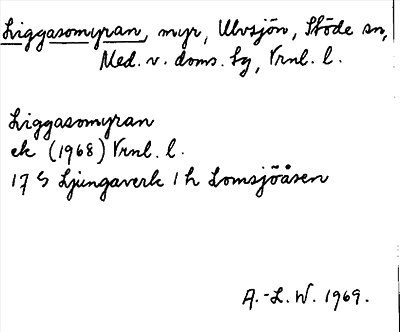 Liggasomyran, myr, Ulvsjön, Stöde sn,
Med. v. doms. tg, Vrnl. l.
Liggasomyran
ek (1968) Vrnl. l.
17 G Ljungaverk 1 h Lomsjöåsen
A.-L. W. 1969.